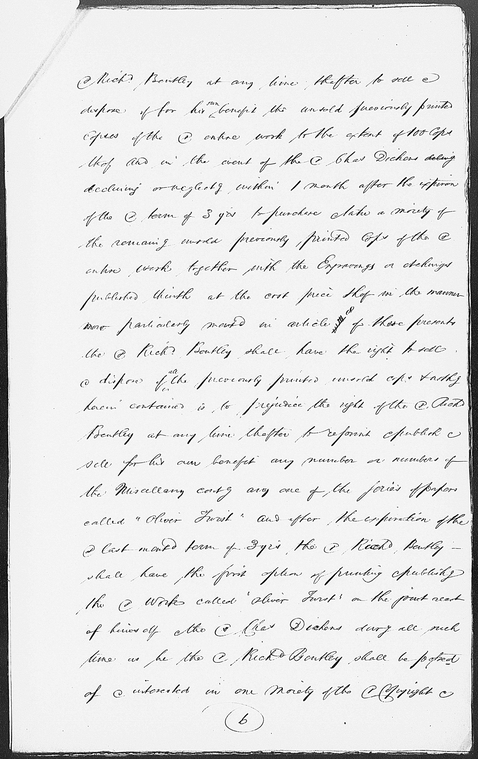 @ Richd Bentley at any time thafter to sell @
dispose of for his own benefit the unsold previously printed
copies of the @ entire work to the extent of 100 Cops
thof and in the event of the @ Chas Dickens
declining or neglectg within 1 month after the expiron
of the @ term of 3 yrs to purchase @ take a moiety of
the remaing unsold previously printed Cops of the @
entire work together with the Engravings or etchings
published thwth at the cost price thof in the manner
more particularly mentd in article of these presents
the @ Richd Bentley shall have the right to sell
@ dispose of all the previously printed unsold cops & nothg
herein contained is to prejudice the right of the @ Richd
Bentley at any time thafter to reprint @ publish @
sell for his own benefit any number or numbers of
the Miscellany contg any one of the series of papers
called "Oliver Twist" and after the expiration of the
@ last mentd term of 3 yrs the @ Richd Bentley –
shall have the first option of printing @ publishg
the @ Work called 'Oliver Twist' on the joint acct
of himself @ the @ Chas Dickens durg all such
time as he the @ Richd Bentley shall be possed
of @ interested in one moiety of the @ Copyright @
6